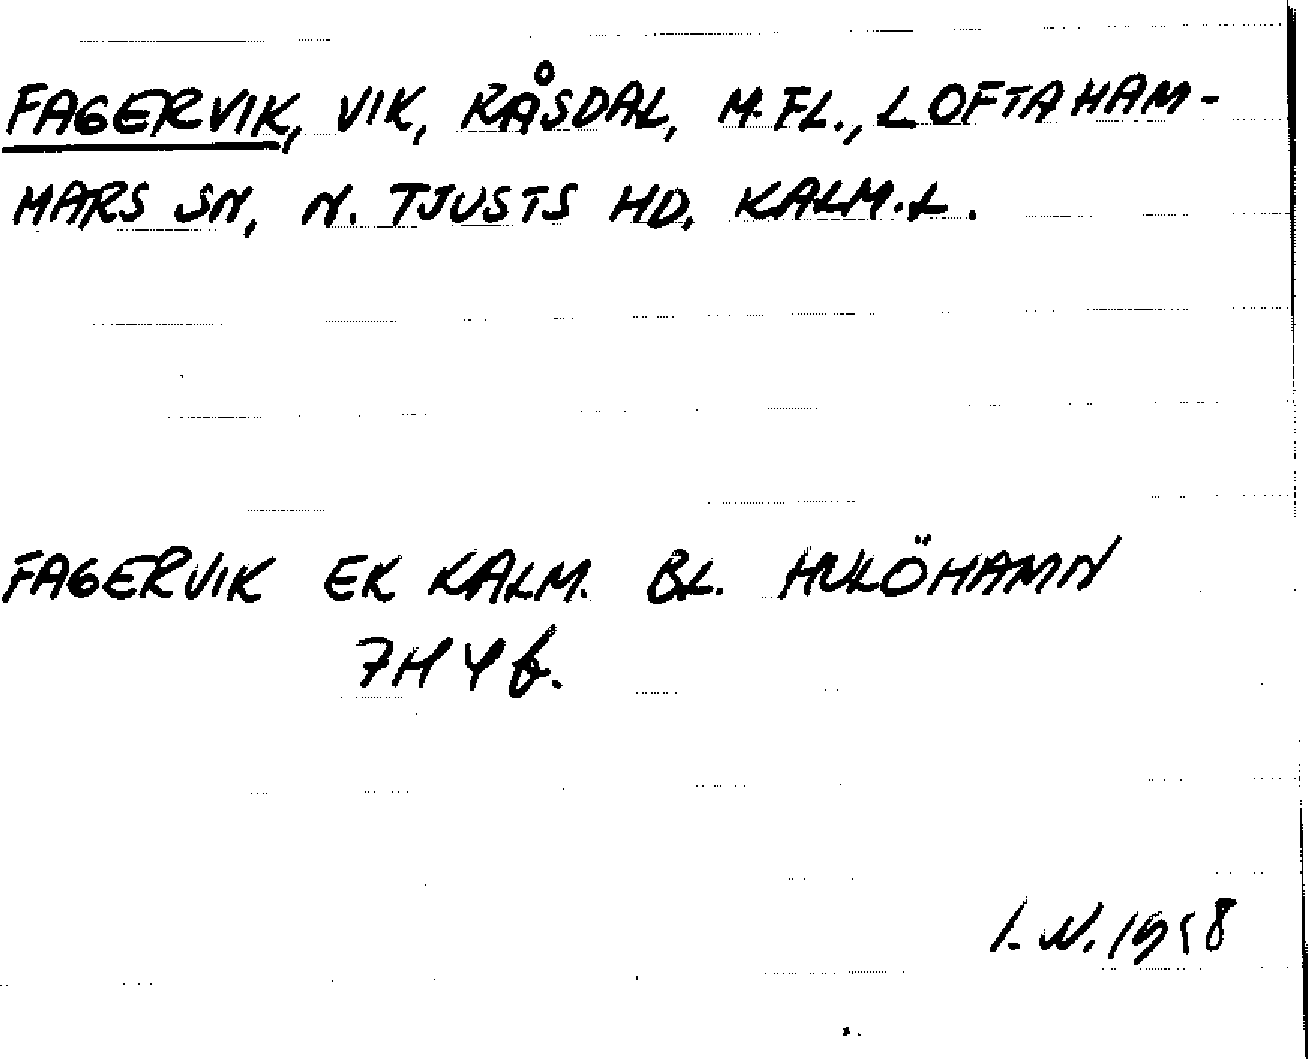 FAGERVIK, VIK, RÅSDAL, M.FL., LOFTAHAM-
MARS SN, N. TJUSTS HD, KALM.L.
FAGERVIK EK KALM. BL. HULÖHAMN
7H4b.
I.N. 1958